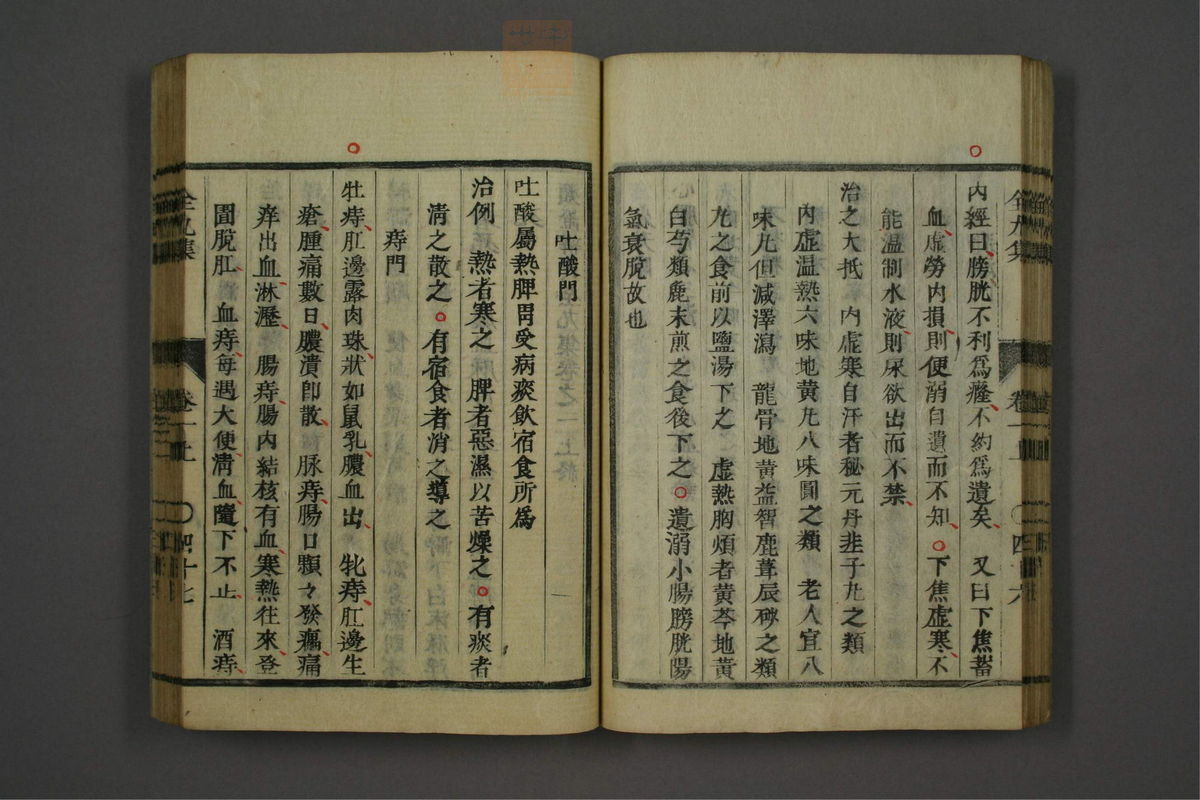 內經曰膀胱不利爲癃不約爲遺矣　又曰下焦蓄
血虛勞內損則便溺自遺而不知○下焦虛寒不
能溫制水液則尿欲出而不禁
治之大抵　內虛寒自汗者秘元丹韭子丸之類
內虛温熱六味地黄丸八味圓之類　老人宜八
味丸但減澤瀉　龍骨地黄益智鹿茸辰砂之類
丸之食前以鹽湯下之　虛熱胸煩者黄芩地黄
白芍類麁末煎之食後下之○遺溺小腸膀胱陽
氣衰脫故也
吐酸門
吐酸屬熱脾胃受病痰飲宿食所爲
治例　熱者寒之　脾者惡濕以苦燥之○有痰者
淸之散之○有宿食者消之導之
痔門
牡痔肛邊露肉珠狀如鼠乳膿血出　牝痔肛邊生
瘡腫痛數日膿潰卽散　脉痔腸口顆々發瘺痛
痒出血淋瀝　腸痔腸內結核有血寒熱往來登
圊脫肛　血痔每遇大便淸血隨下不止　酒痔
全九集　卷二上　○四十六
全九集　卷二上　○四十七